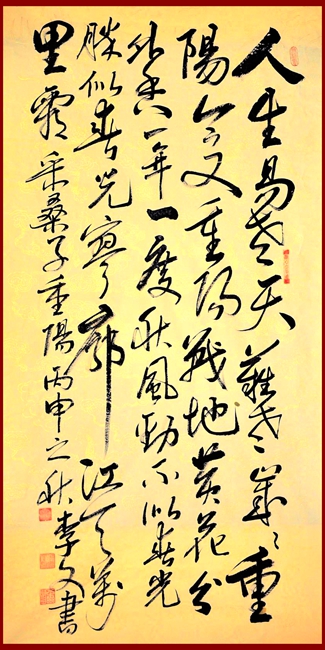 人生易老天難老歲〻重
陽今又重陽戰地黃花分
外香一年一度秋風勁不似春光
勝似春光寥廓江天萬
里霜 采桑子重陽丙申之秋李文書